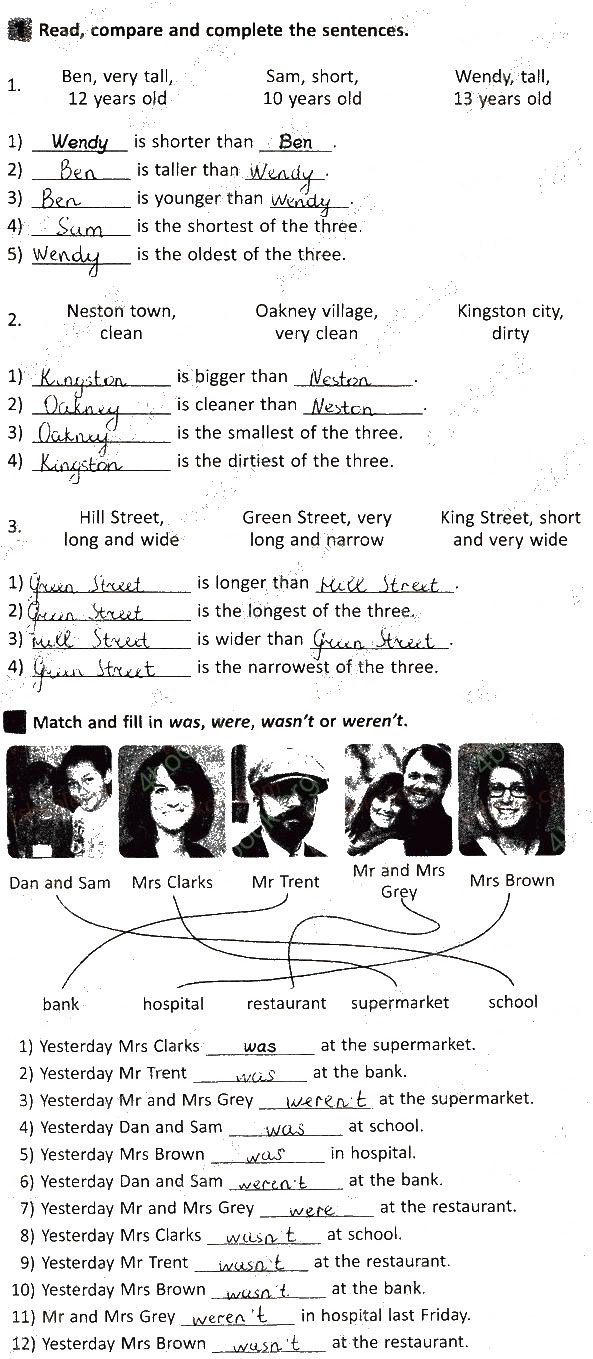 1 Read, compare and complete the sentences.
1. Ben, very tall, 12 years old Sam, short, 10 years old Wendy, tall, 13 years old
1) Wendy is shorter than Ben.
2) Ben is taller than Wendy.
3) Ben is younger than Wendy.
4) Sam is the shortest of the three.
5) Wendy is the oldest of the three.
2. Neston town, clean Oakney village, very clean Kingston city, dirty
1) Kingston is bigger than Neston.
2) Oakney is cleaner than Neston.
3) Oakney is the smallest of the three.
4) Kingston is the dirtiest of the three.
3. Hill Street, long and wide Green Street, very long and narrow King Street, short and very wide
1) Green Street is longer than Hill Street.
2) Green Street is the longest of the three.
3) Hill Street is wider than Green Street.
4) Green Street is the narrowest of the three.
Match and fill in was, were, wasn't or weren't.
Dan and Sam Mrs Clarks Mr Trent Mr and Mrs Grey Mrs Brown
bank hospital restaurant supermarket school
1) Yesterday Mrs Clarks was at the supermarket.
2) Yesterday Mr Trent was at the bank.
3) Yesterday Mr and Mrs Grey weren't at the supermarket.
4) Yesterday Dan and Sam was at school.
5) Yesterday Mrs Brown was in hospital.
6) Yesterday Dan and Sam weren't at the bank.
7) Yesterday Mr and Mrs Grey were at the restaurant.
8) Yesterday Mrs Clarks wasn't at school.
9) Yesterday Mr Trent wasn't at the restaurant.
10) Yesterday Mrs Brown wasn't at the bank.
11) Mr and Mrs Grey weren't in hospital last Friday.
12) Yesterday Mrs Brown wasn't at the restaurant.